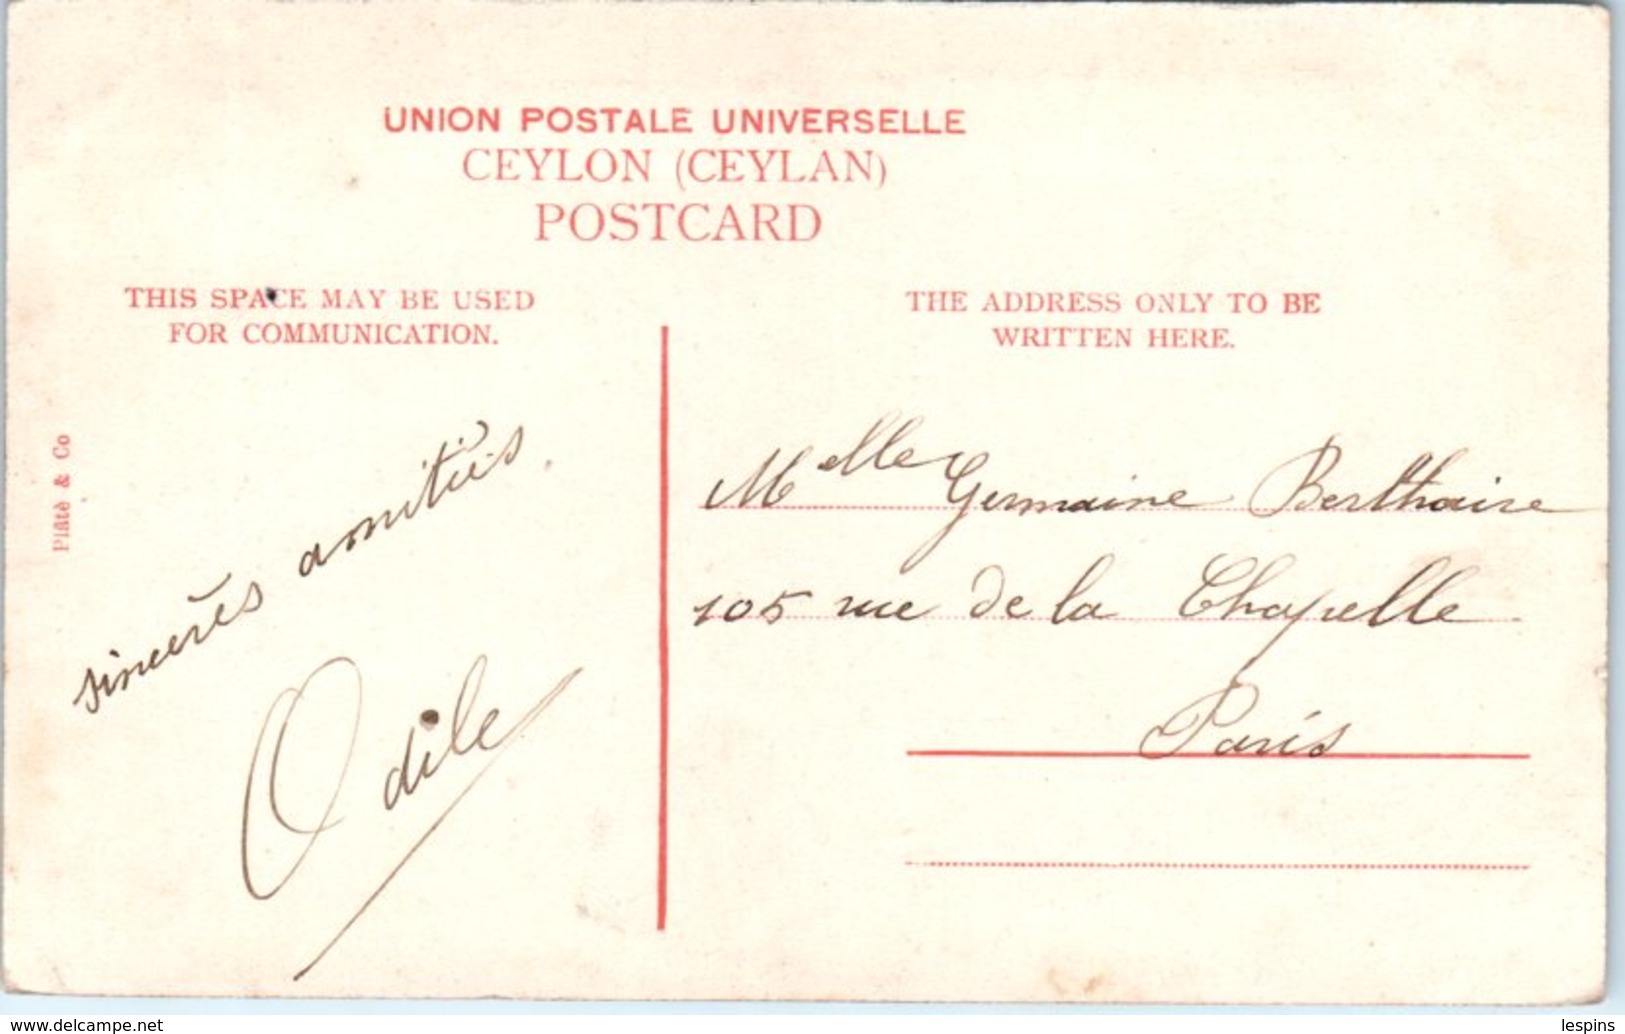 UNION POSTALE UNIVERSELLE
CEYLON (CEYLAN)
POSTCARD
THIS SPACE MAY BE USED
FOR COMMUNICATION.
THE ADDRESS ONLY TO BE
WRITTEN HERE.
Plâté & Co
sincerès amitiés.
Odile
Melle Germaine Berthaire
105 rue de la Chapelle
Paris
www.delcampe.net
lespins